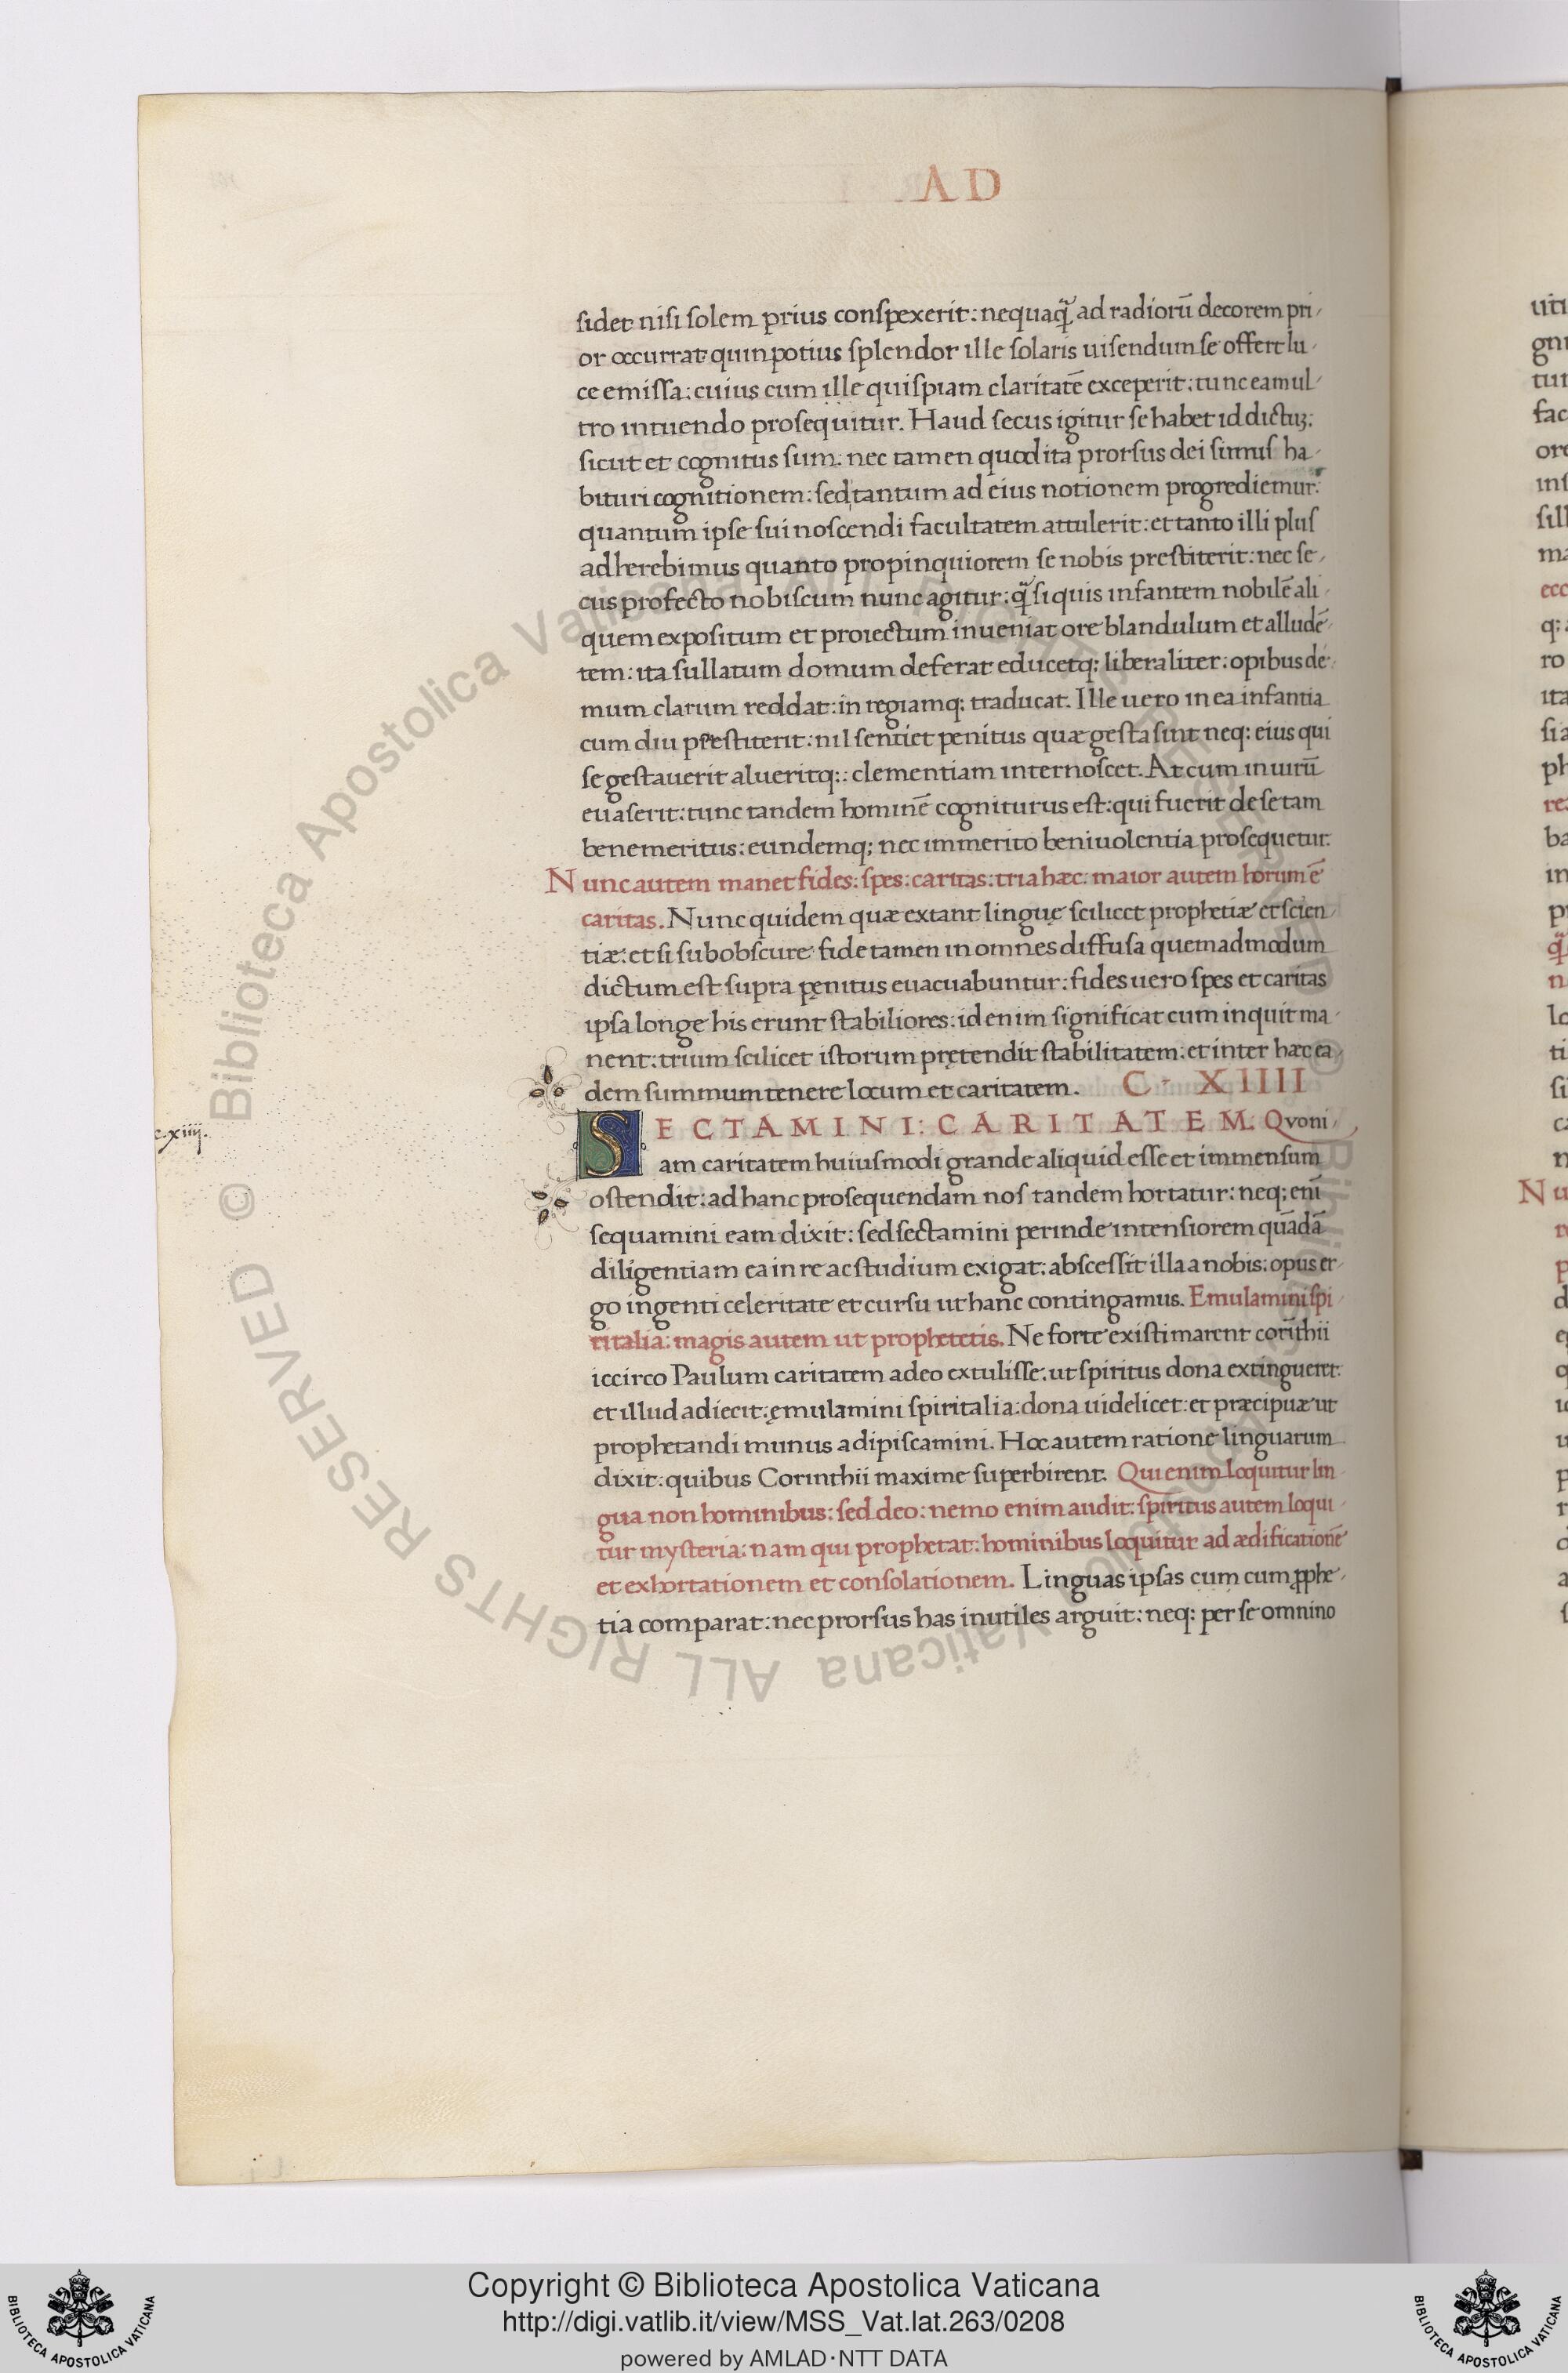 AD
sidet nisi solem prius conspexerit: nequaq̃ ad radiorū decorem pri
or occurrat quin potius splendor ille solaris uisendum se offert lu
ce emissa: cuius cum ille quispiam claritatē exceperit: tunc eam ul
tro intuendo prosequitur. Haud secus igitur se habet id dictuꝫ:
sicut et cognitus sum: nec tamen quod ita prorsus dei simus ha
bituri cognitionem: sed tantum ad eius notionem progrediemur:
quantum ipse sui noscendi facultatem attulerit: et tanto illi plus
adherebimus quanto propinquiorem se nobis prestiterit: nec se
cus profecto nobiscum nunc agitur: q̃ si quis infantem nobilē ali
quem expositum et proiectum inueniat ore blandulum et alludē
tem: ita sullatum domum deferat educetq: liberaliter: opibus de
mum clarum reddat: in regiamq: traducat. Ille uero in ea infantia
cum diu prestiterit: nil sentiet penitus quæ gesta sint neq: eius qui
se gestauerit alueritq:: clementiam internoscet. At cum in uirū
euaserit: tunc tandem hominē cogniturus est: qui fuerit de se tam
benemeritus: eundemq; nec immerito beniuolentia prosequetur.
Nunc autem manet fides: spes: caritas: tria hæc: maior autem horum ē
caritas. Nunc quidem quæ extant linguę scilicet prophetiæ et scien
tiæ: et si subobscure fide tamen in omnes diffusa quemadmodum
dictum est supra pęnitus euacuabuntur: fides uero spes et caritas
ipsa longe his erunt stabiliores: id enim significat cum inquit ma
nent: trium scilicet istorum prętendit stabilitatem: et inter hæc ea
dem summum tenere locum et caritatem. C. XIIII
c. xiiij.
SECTAMINI: CARITATEM. Quoni
am caritatem huiusmodi grande aliquid esse et immensum
ostendit: ad hanc prosequendam nos tandem hortatur: neq; enī
sequamini eam dixit: sed sectamini perinde intensiorem quādā
diligentiam ea in re ac studium exigat: abscessit illa a nobis: opus er
go ingenti celeritate et cursu ut hanc contingamus. Emulamini spi
ritalia: magis autem ut prophetetis. Ne forte existimarent corīthii
iccirco Paulum caritatem adeo extulisse: ut spiritus dona extingueret:
et illud adiecit: ęmulamini spiritalia: dona uidelicet: et præcipuæ ut
prophetandi munus adipiscamini. Hoc autem ratione linguarum
dixit: quibus Corinthii maxime superbirent. Qui enim loquitur lin
gua non hominibus: sed deo: nemo enim audit: spiritus autem loqui
tur mysteria: nam qui prophetat: hominibus loquitur ad ædificationē
et exhortationem et consolationem. Linguas ipsas cum cum ꝓphe
tia comparat: nec prorsus has inutiles arguit: neq: per se omnino
© Biblioteca Apostolica Vaticana ALL RIGHTS RESERVED
Copyright © Biblioteca Apostolica Vaticana
http://digi.vatlib.it/view/MSS_Vat.lat.263/0208
powered by AMLAD·NTT DATA
BIBLIOTECA APOSTOLICA VATICANA
BIBLIOTECA APOSTOLICA VATICANA